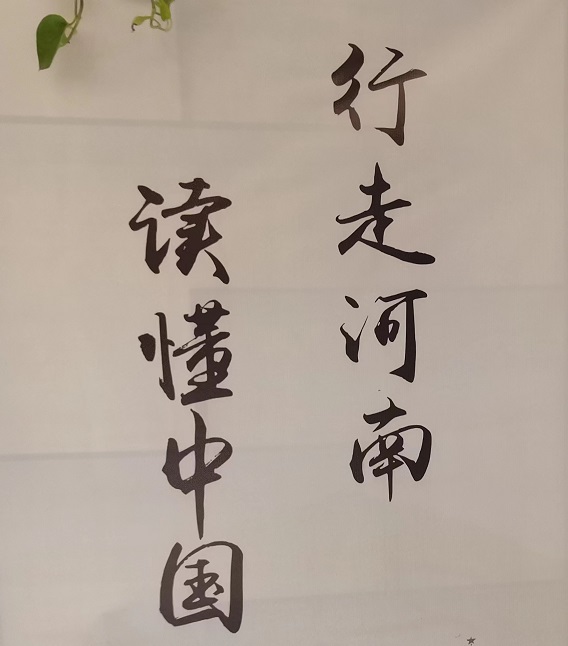 行走河南
读懂中国